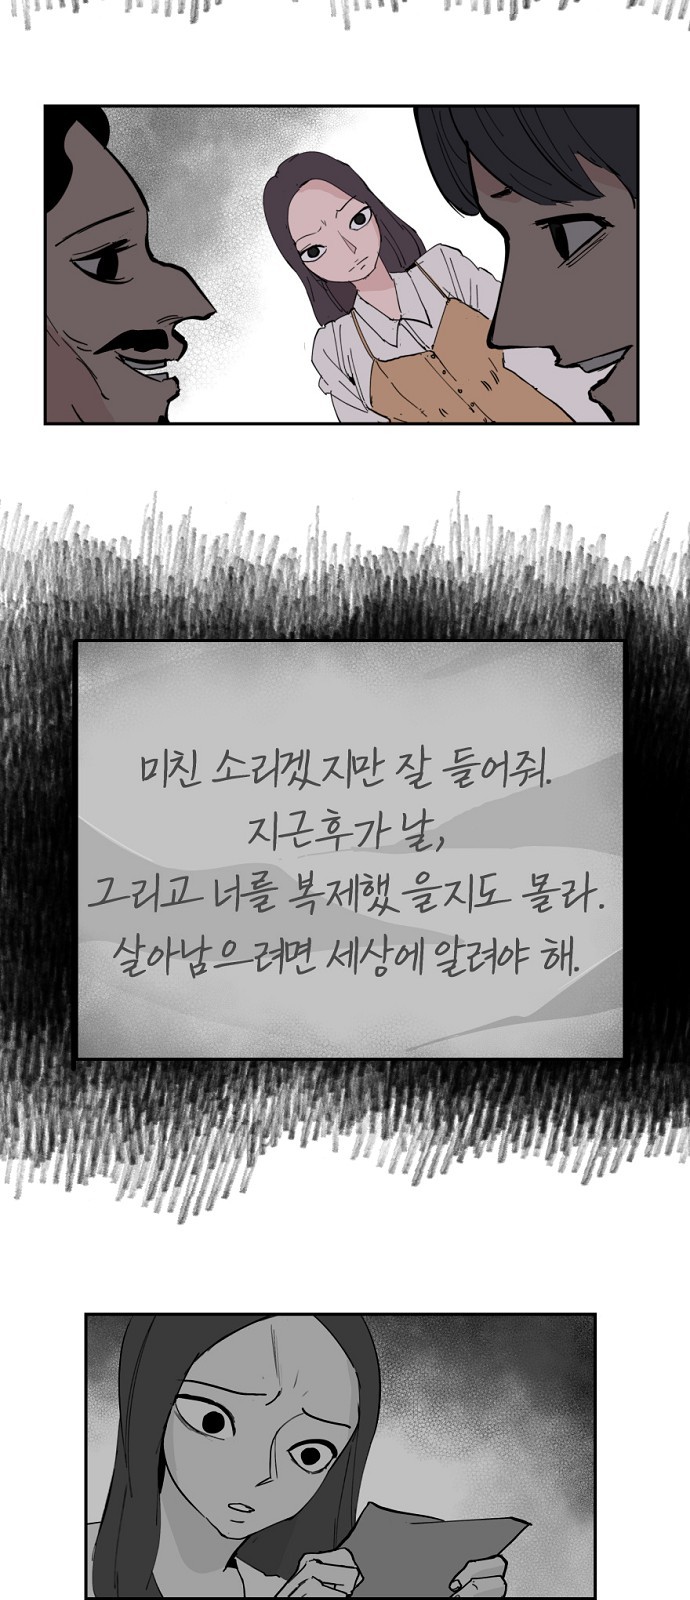 미친 소리겠지만 잘 들어줘.
지근후가 날,
그리고 너를 복제했 을지도 몰라.
살아남으려면 세상에 알려야 해.